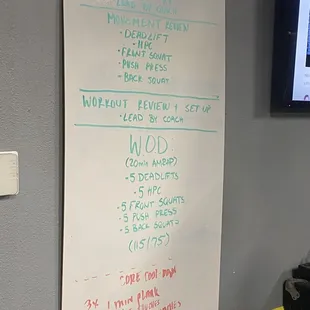 MOVEMENT REVIEW
• DEADLIFT
• HPC
• FRONT SQUAT
• PUSH PRESS
• BACK SQUAT
WORKOUT REVIEW & SET UP
• LEAD BY COACH
WOD
(20 min AMRAP)
• 5 DEADLIFTS
• 5 HPC
• 5 FRONT SQUATS
• 5 PUSH PRESS
• 5 BACK SQUATS
(115/75)
CORE COOL DOWN
3x 1 min plank